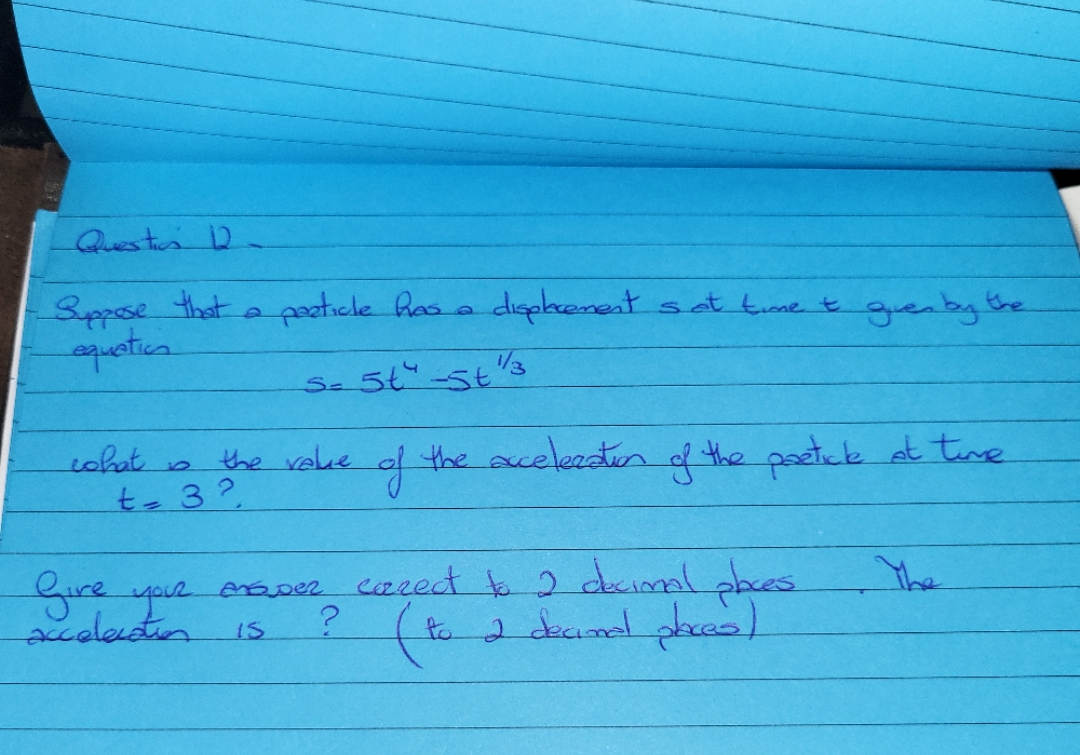 Question 12 -
Suppose that a particle has a displacement s at time t given by the
equation
s = 5t⁴ - 5t^1/3
What is the value of the acceleration of the particle at time
t = 3 ?.
Give your answer correct to 2 decimal places . The
acceleration is ? (to 2 decimal places)